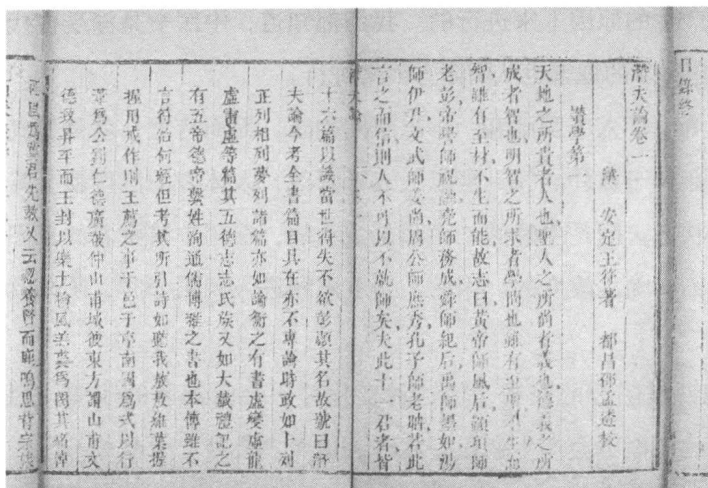 目錄終
潛夫論卷一
漢 安定王符著 都昌鄧孟校
讚學第一
天地之所貴者人也聖人之所尚者義也德義之所
成者智也明智之所求者學問也雖有至聖不生而
智雖有至材不生而能故志曰黃帝師風后顓頊師
老彭帝嚳師祝融堯師務成舜師紀后禹師墨如湯
師伊尹文武師姜尚周公師庶秀孔子師老聃若此
言之而信則人不可以不就師矣夫此十一君者皆
潛夫論
十六篇以議當世得失不欲彰顯其名故號曰潛
夫論今考全書篇目具在亦不專論時政如卜列
正列相列夢列諸篇亦如論衡之有書虛變虛龍
虛雷虛等篇其五德志志氏族又如大戴禮記之
有五帝德帝繫姓洵通儒博雅之書也本傳雖不
言符治何經但考其所引詩如聽我敖敖維葉握
握用戒作則王薦之事于邑于序南國為式以行
葦為公劉仁德廣被仲山甫城彼東方謂山甫文
德致昇平而王封以樂土檜風羔裘為閔其痛悼
君先教又云忽養賢而鹿鳴思背宗族